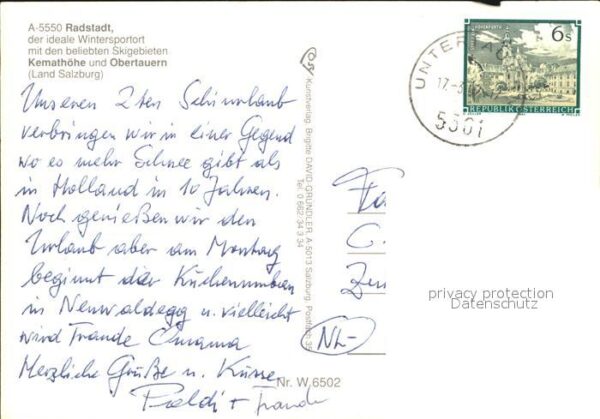 A-5550 Radstadt,
der ideale Wintersportort
mit den beliebten Skigebieten
Kemathöhe und Obertauern
(Land Salzburg)
Unseren 2ten Schiurlaub
verbringen wir in einer Gegend
wo es mehr Schnee gibt als
in Holland in 10 Jahren.
Noch genießen wir den
Urlaub aber am Montag
beginnt der Küchenumbau
in Neuwaldegg u. vielleicht
wird Traude Omama
Herzliche Grüße u. Küsse
Poldi + Traude
Nr. W 6502
Kunstverlag Brigitte DAVID-GRÜNDLER, A 5013 Salzburg Postfach 35
Tel. 0 662/34 9 34
6s
REPUBLIK ÖSTERREICH
UNTER
17.-3
5561
C.
NL-
privacy protection
Datenschutz